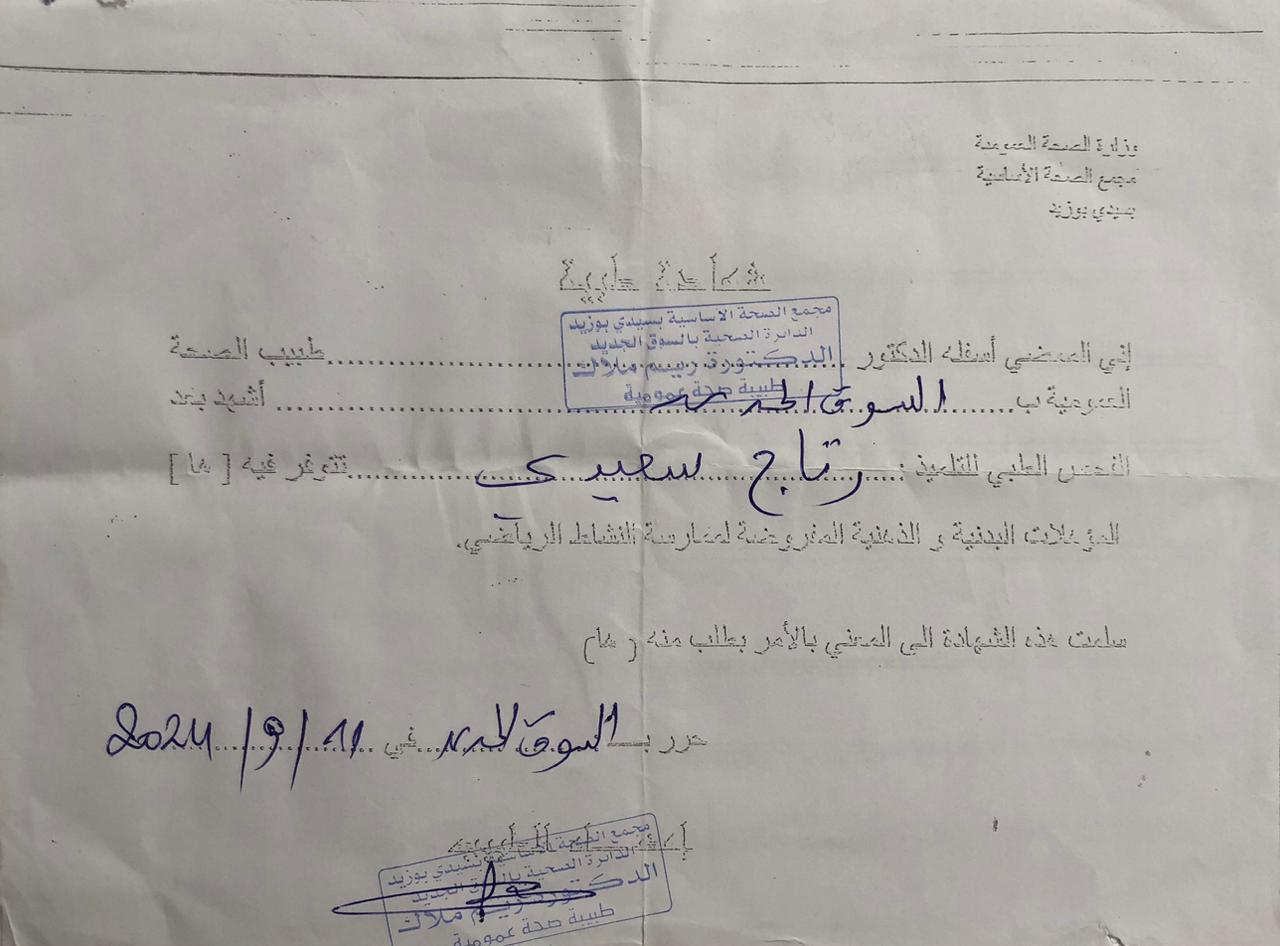 وزارة الصحة العمومية
مجمع الصحة الأساسية
بسيدي بوزيد
شهادة طبية
مجمع الصحة الأساسية بسيدي بوزيد
الدائرة الصحية بالسوق الجديد
الدكتورة ريم ملاك
طبيبة صحة عمومية
إني الممضي أسفله الدكتور .................... طبيب الصحة
العمومية ب...... السوق الجديد .................... أشهد بعد
الفحص الطبي للتلميذ : رتاج سعيدي ............ تتوفر فيه [ ها ]
المؤهلات البدنية و الذهنية المفروضة لممارسة النشاط الرياضي.
سلمت هذه الشهادة الى المعني بالأمر بطلب منه ( ها)
حرر بـ السوق الجديد في 11 / 9 / 2024
إمضاء الطبيب
مجمع الصحة الأساسية بسيدي بوزيد
الدائرة الصحية بالسوق الجديد
الدكتورة ريم ملاك
طبيبة صحة عمومية